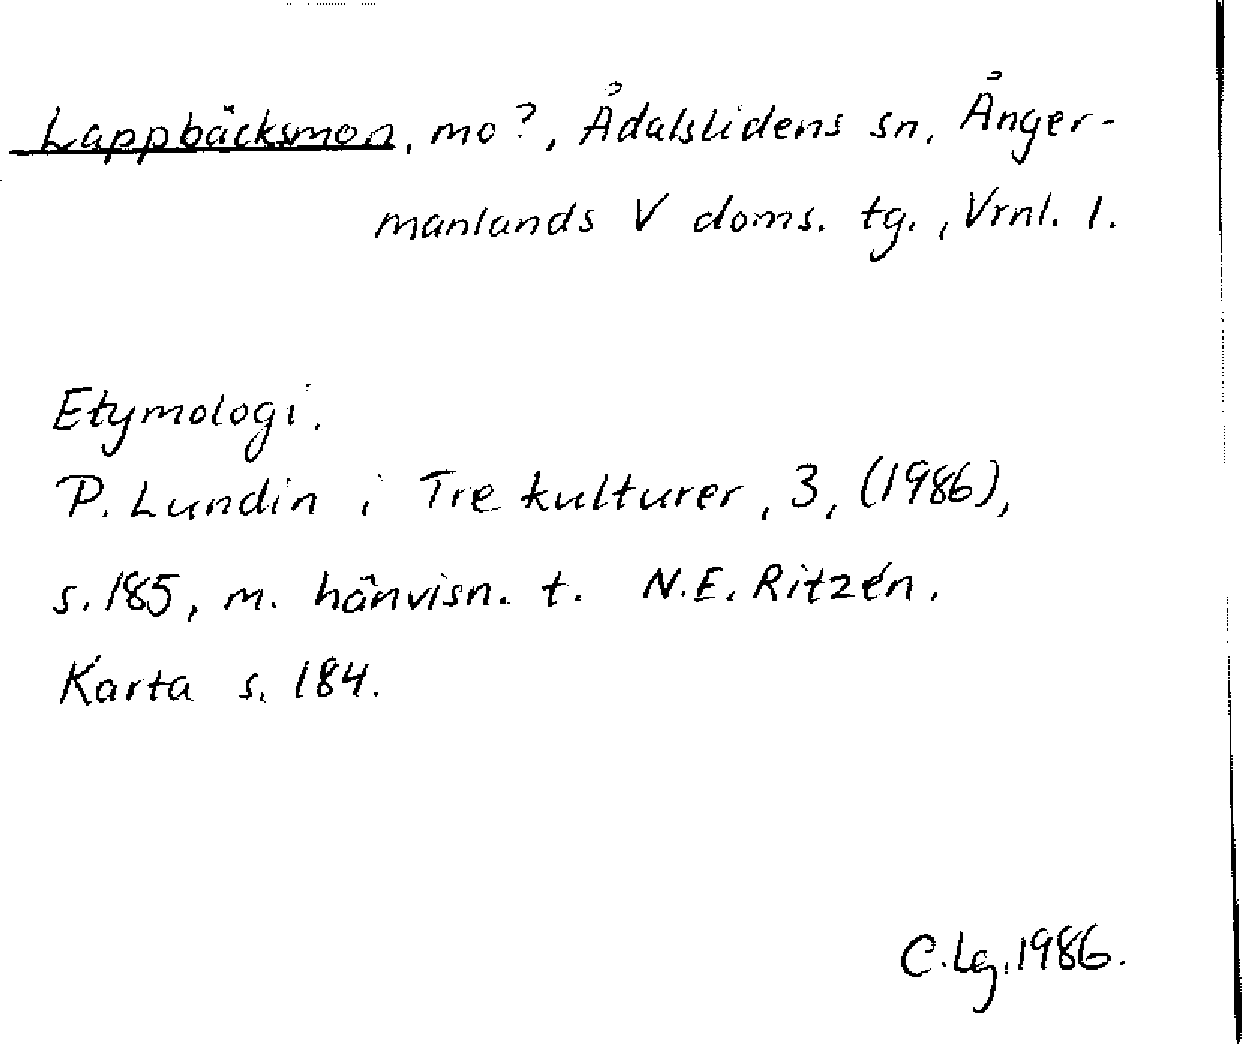 Lappbäcksmon, mo?, Ådalslidens sn, Ånger-
manlands V doms. tg., Vrnl. l.
Etymologi.
P. Lundin i Tre kulturer, 3, (1986),
s. 185, m. hänvisn. t. N.E. Ritzén.
Karta s. 184.
C. Lg. 1986.